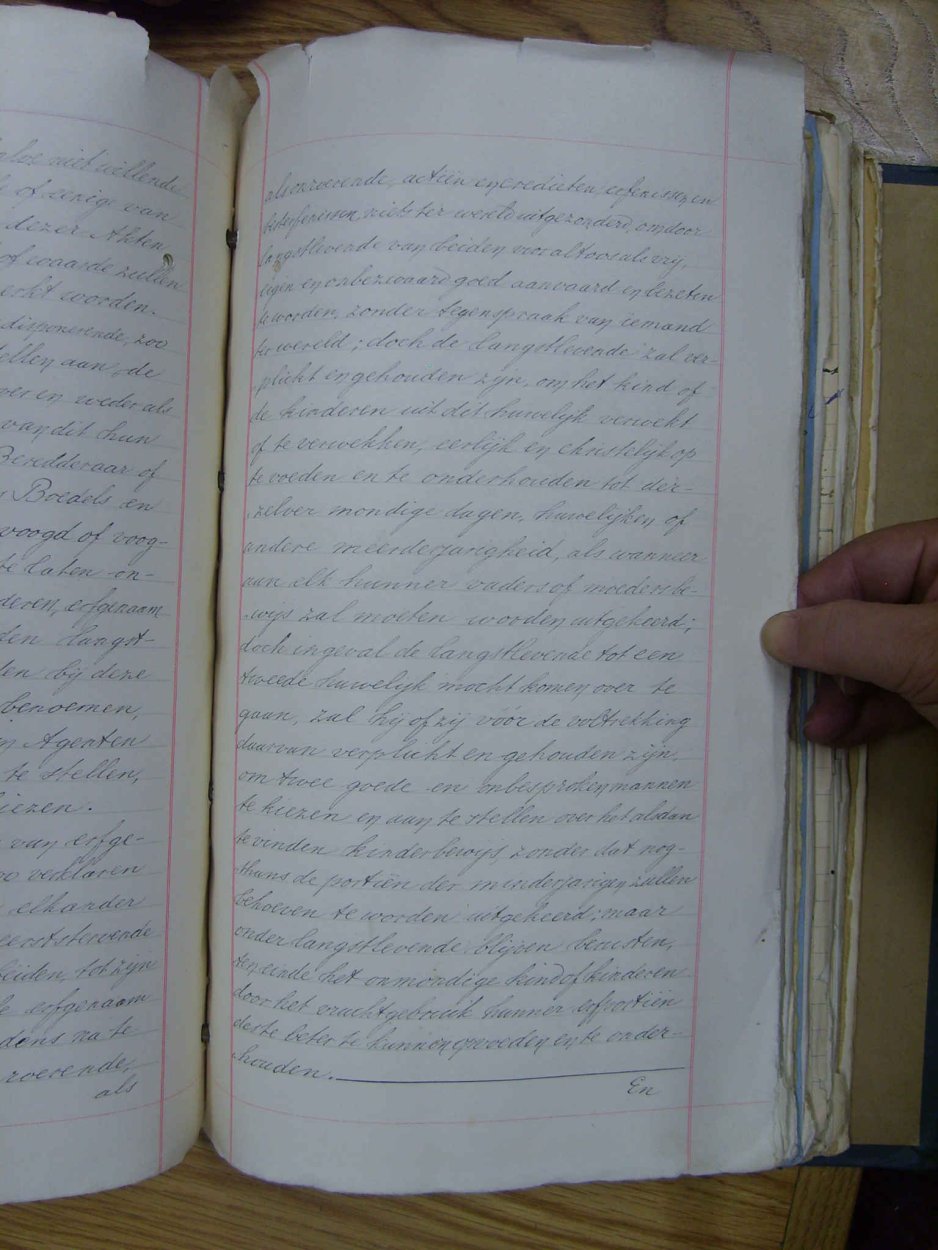 niet willende
of eenige van
dezer Akten
of waarde zullen
worden.
disponerende, zoo
stellen aan, de
weder als
van dit hun
Beredderaar of
Boedels en
voogd of voog-
te laten on-
deren, erfgenaam
den langst-
den bij deze
benoemen,
Agenten
te stellen,
van erfge-
zoo verklaren
elkander
eerststervende
beiden, tot zijn
erfgenaam
na te
roerende,
als
als onroerende, actiën en credieten, erfenissen en
besterfenissen, niets ter wereld uitgezonderd, om door
langstlevende van beiden voor altoos als vrij
eigen en onbezwaard goed aanvaard en bezeten
te worden, zonder tegenspraak van iemand
ter wereld; doch de langstlevende zal ver-
plicht en gehouden zijn, om het kind of
de kinderen uit dit huwelijk verwekt
of te verwekken, eerlijk en christelijk op
te voeden en te onderhouden tot der-
zelver mondige dagen, huwelijken of
andere meerderjarigheid, als wanneer
aan elk hunner vaders of moeders be-
wijs zal moeten worden uitgekeerd;
doch ingeval de langstlevende tot een
tweede huwelijk mocht komen over te
gaan, zal hij of zij vóór de voltrekking
daarvan verplicht en gehouden zijn,
om twee goede en onbesproken mannen
te kiezen en aan te stellen over het alsdan
te vinden kinderbewijs, zonder dat nog-
thans de portiën der minderjarigen zullen
behoeven te worden uitgekeerd; maar
onder langstlevende blijven berusten,
ten einde het onmondige kind of kinderen
door het vruchtgebruik hunner erfportiën
des te beter te kunnen opvoeden en te onder-
houden.
En